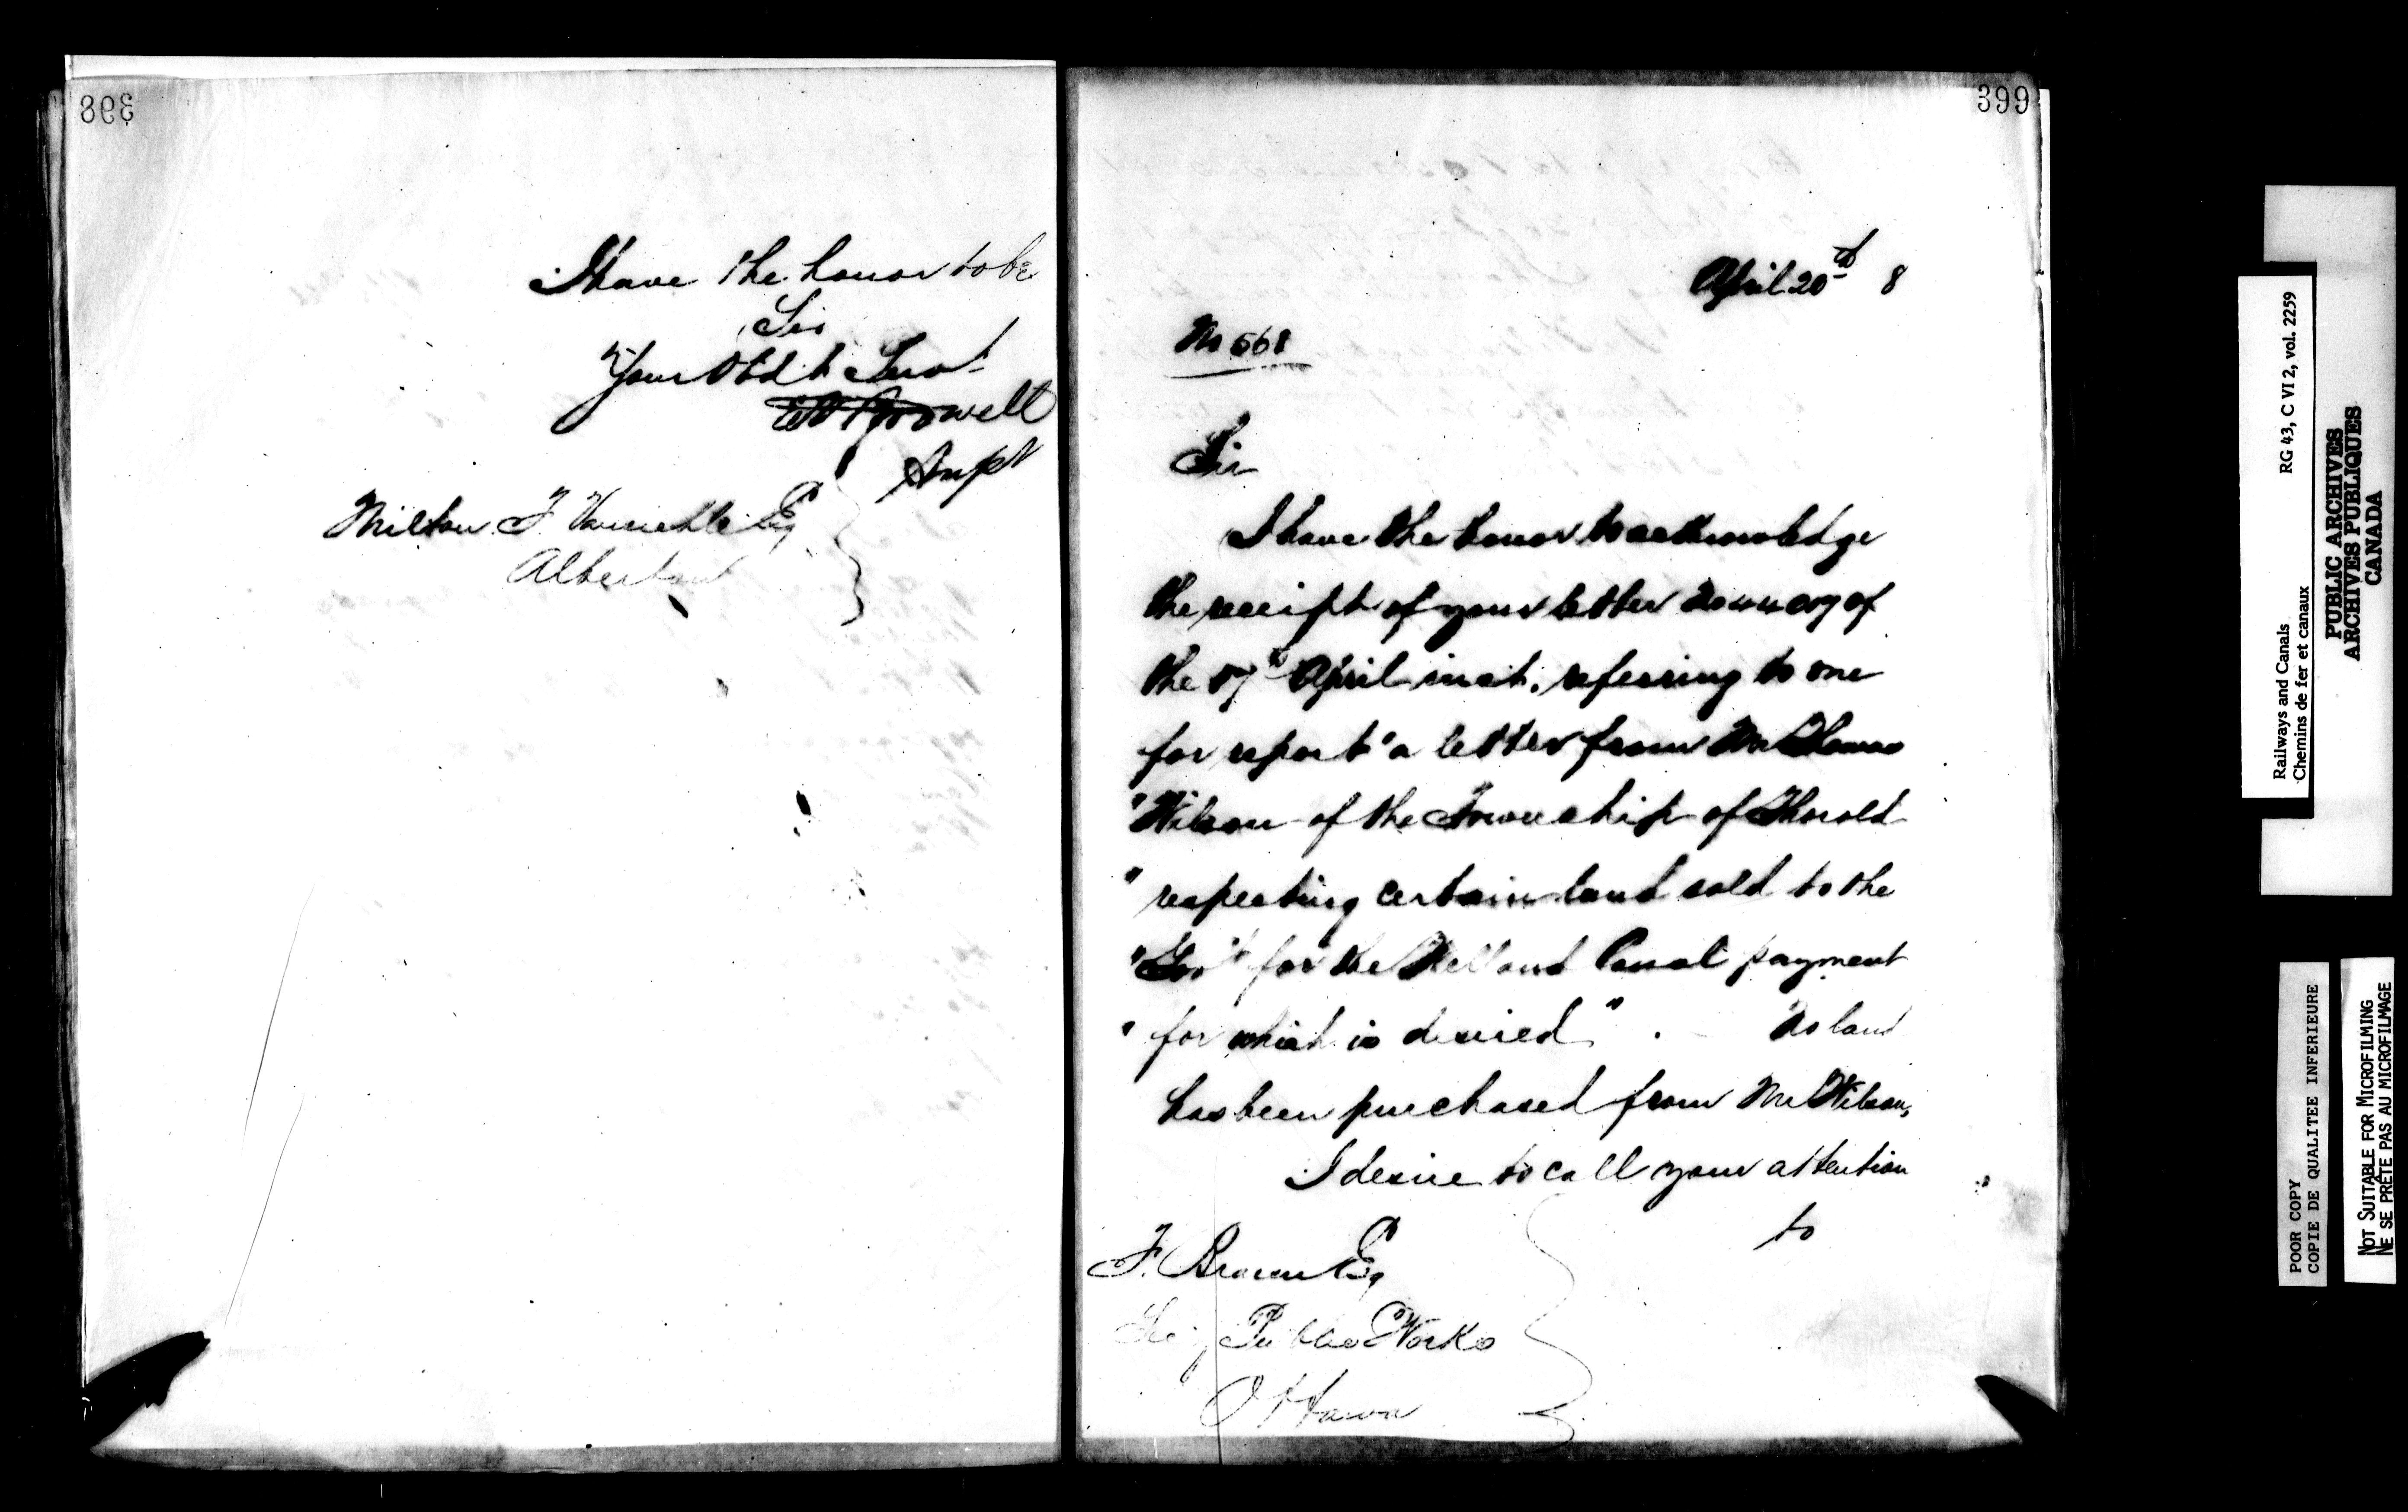 398
I have the honor to be
Sir
Your Obdt Servt
Supt
Milton F Esq
Alberton
399
April 20th 8
No 568
Sir
I have the honor to acknowledge
the receipt of your letter of
the April inst. referring to me
for report "a letter from Mr Thomas
"Wilson of the Township of Thorold
" respecting certain land sold to the
"Govt for the Welland Canal payment
" for which is desired" . - No land
has been purchased from Mr Wilson,
I desire to call your attention
to
F. Braun Esq
Secy Public Works
Ottawa
Railways and Canals RG 43, C VI 2, vol. 2259
Chemins de fer et canaux
PUBLIC ARCHIVES
ARCHIVES PUBLIQUES
CANADA
POOR COPY
COPIE DE QUALITEE INFERIEURE
NOT SUITABLE FOR MICROFILMING
NE SE PRÊTE PAS AU MICROFILMAGE